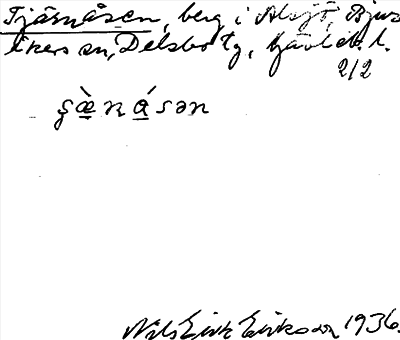 Tjärnåsen, berg i Alsjö, Bjur
åkers sn, Delsbo tg, Gävleb. l.
2/2
ʂæ̀násən
Nils Erik Eriksson 1936.